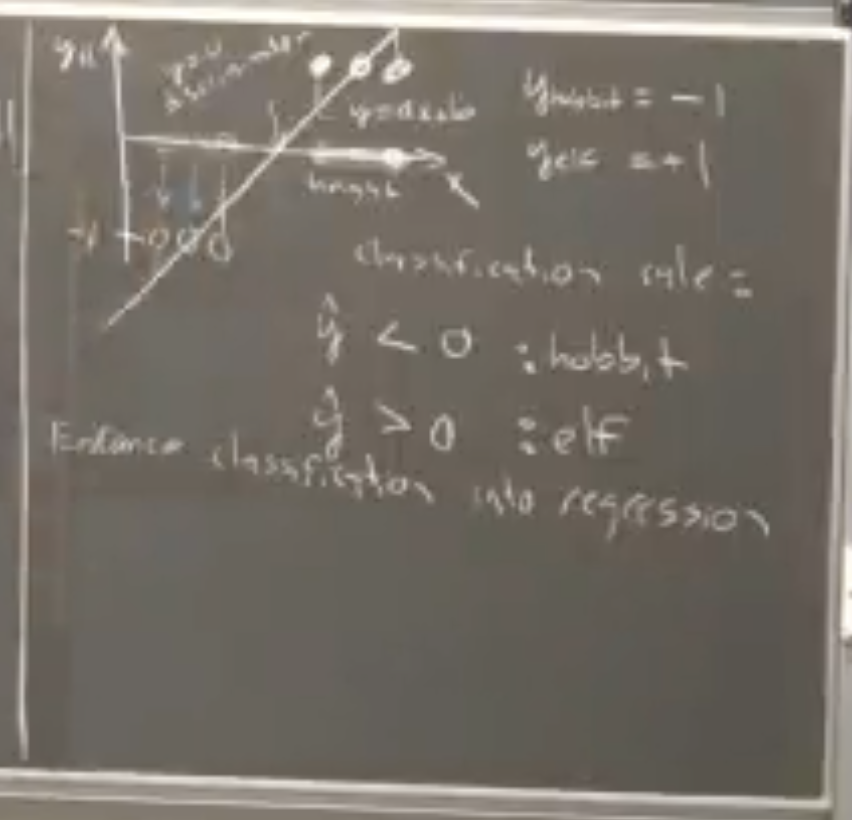 y
y = ax+b
height
x
-1
y hobbit = -1
y elf = +1
classification rule:
ŷ < 0 : hobbit
ŷ > 0 : elf
classification into regression